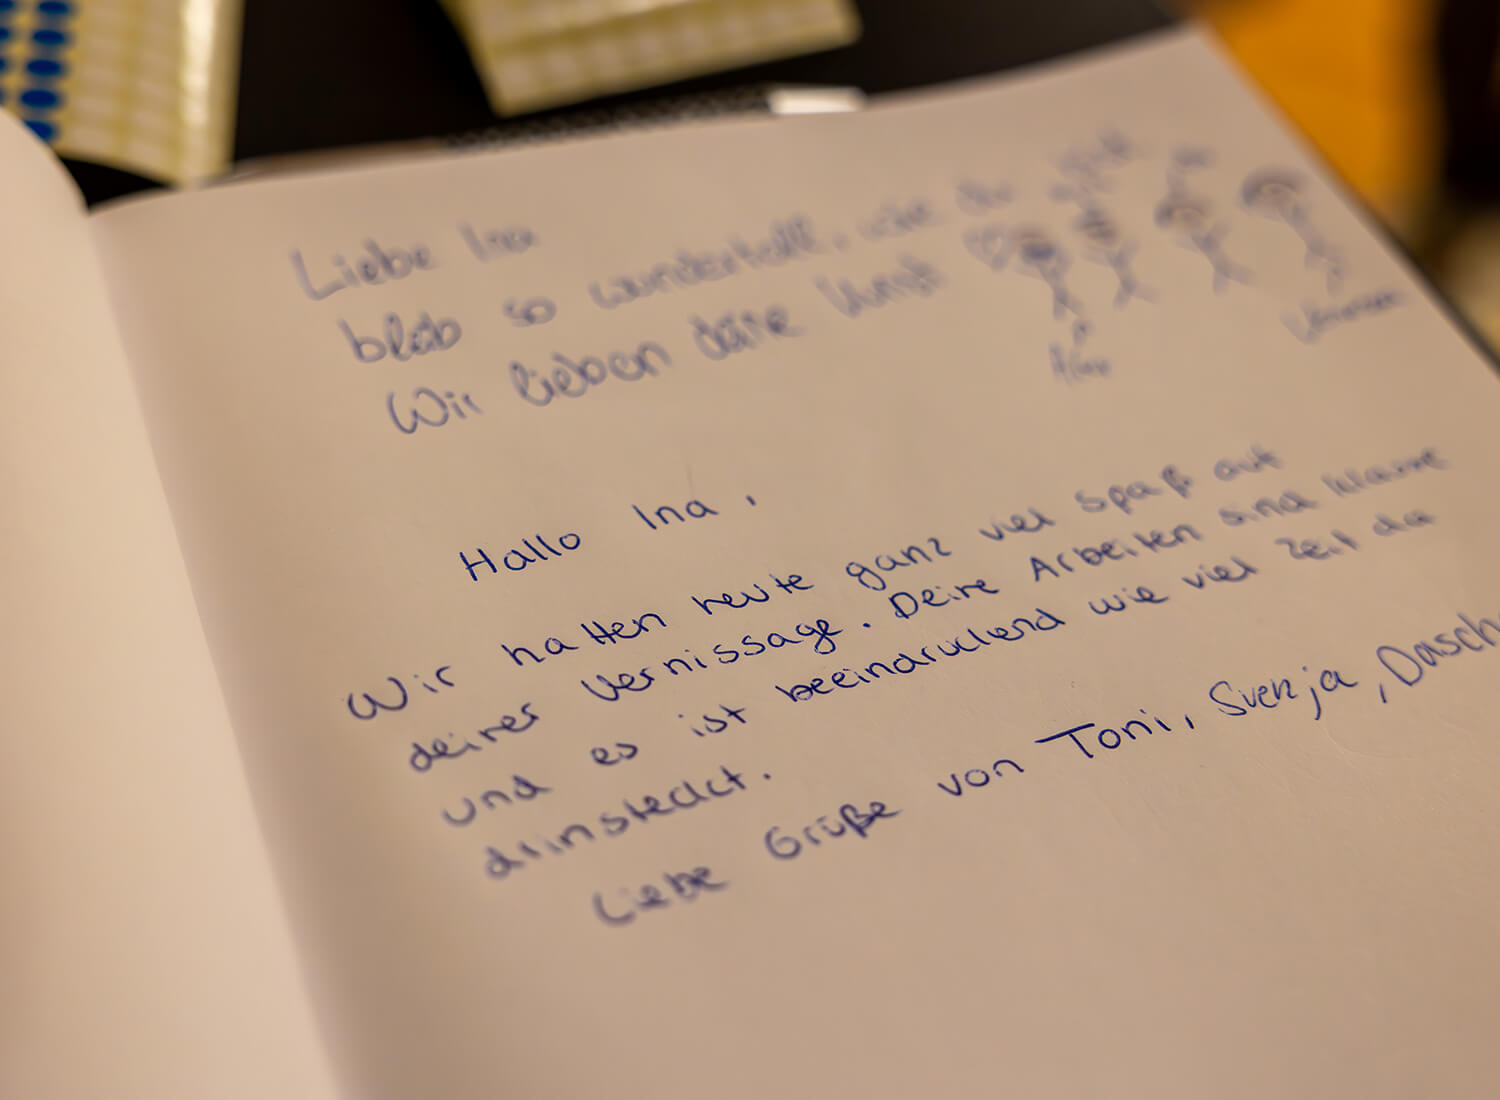 Liebe Ina
bleib so wundertoll, wie du
Wir lieben deine Kunst
Hallo Ina,
Wir hatten heute ganz viel Spaß auf
deiner Vernissage. Deine Arbeiten sind klasse
und es ist beeindruckend wie viel Zeit da
drinsteckt.
Liebe Grüße von Toni, Svenja, Dasch